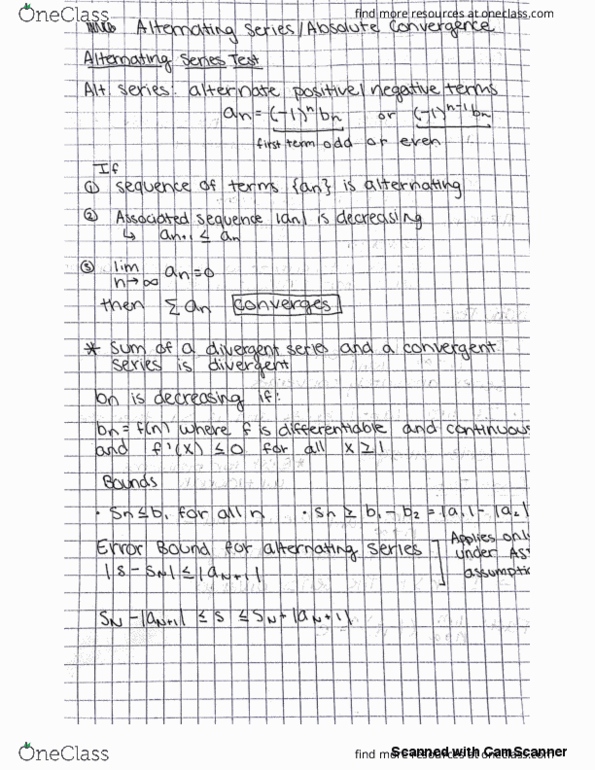 OneClass
find more resources at oneclass.com
Alternating Series/Absolute Convergence
Alternating Series Test
Alt series: alternate positive/negative terms
an = (-1)ⁿbn or (-1)ⁿ⁻¹bn
first term odd or even
If
① sequence of terms {an} is alternating
② Associated sequence |an| is decreasing
↳ an+1 ≤ an
③ lim n→∞ an = 0
then Σan converges
* sum of a divergent series and a convergent
series is divergent
bn is decreasing if:
bn = f(n) where f is differentiable and continuous
and f'(x) ≤ 0 for all x ≥ 1
Bounds
· Sn ≤ b1 for all n · Sn ≥ b1 - b2 = |a1| - |a2|
Error Bound for alternating series
|S - SN| ≤ |aN+1|
Applies onl
under AS
assumptio
SN - |aN+1| ≤ S ≤ SN + |aN+1|
OneClass
find more resources at oneclass.com
Scanned with CamScanner